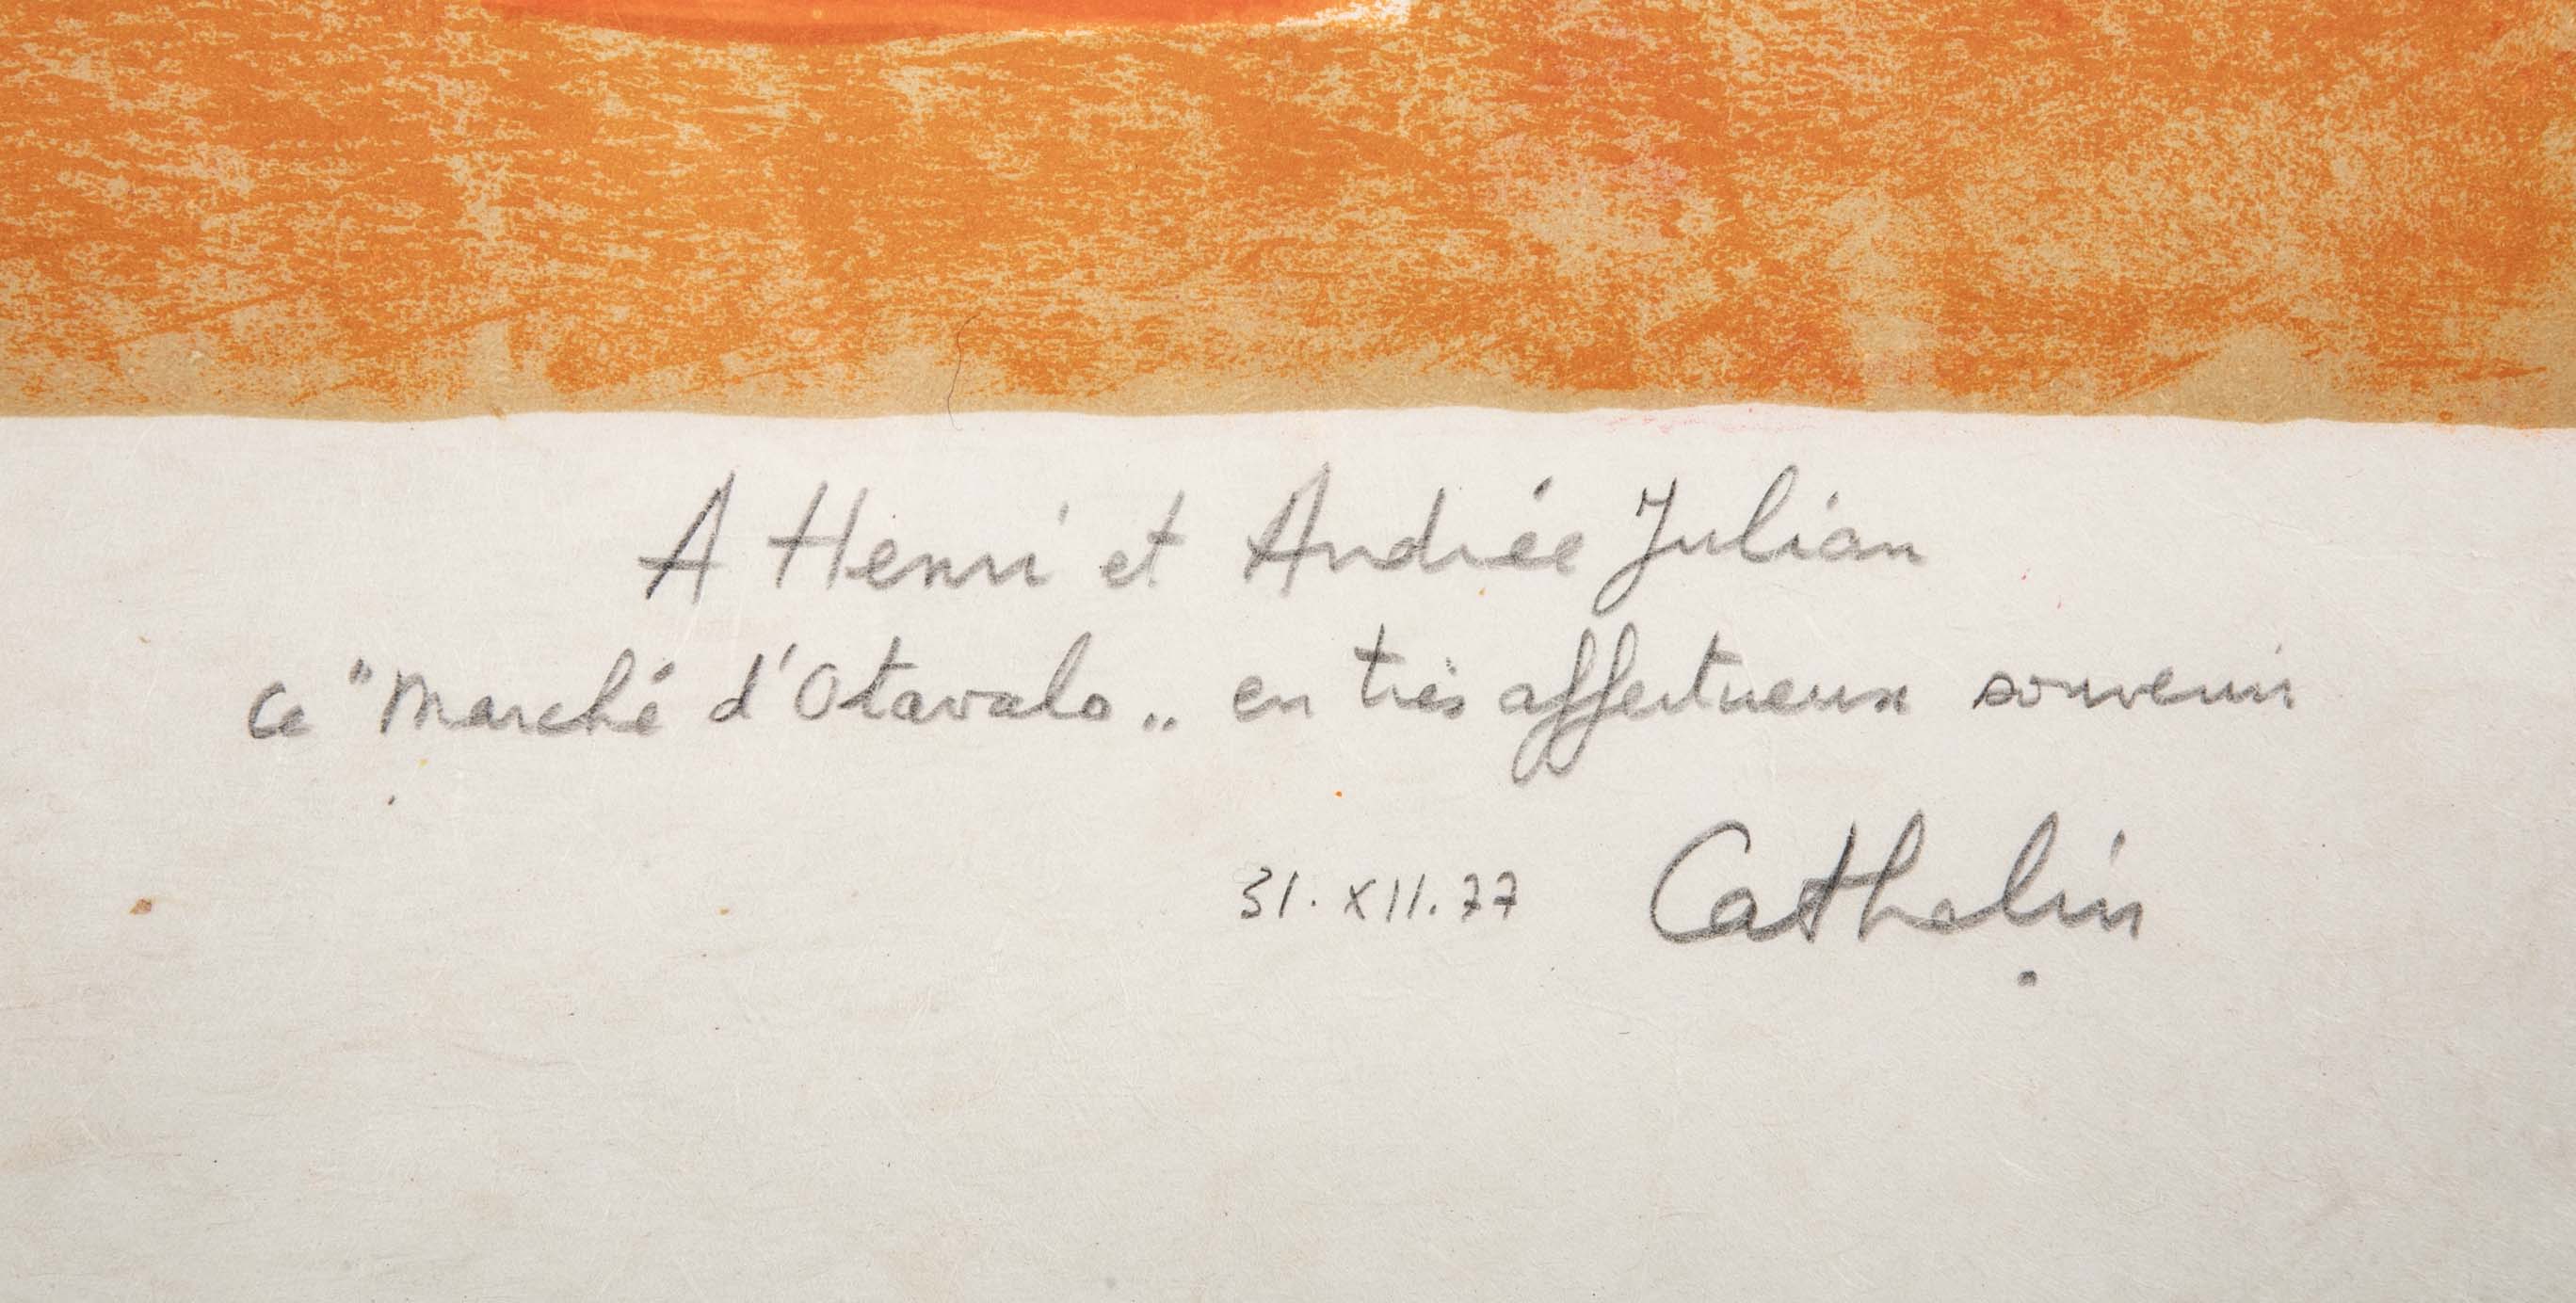 A Henri et Andrée Julian
ce "Marché d'Otavalo" en très affectueux souvenir
31.XII.77 Cathelin